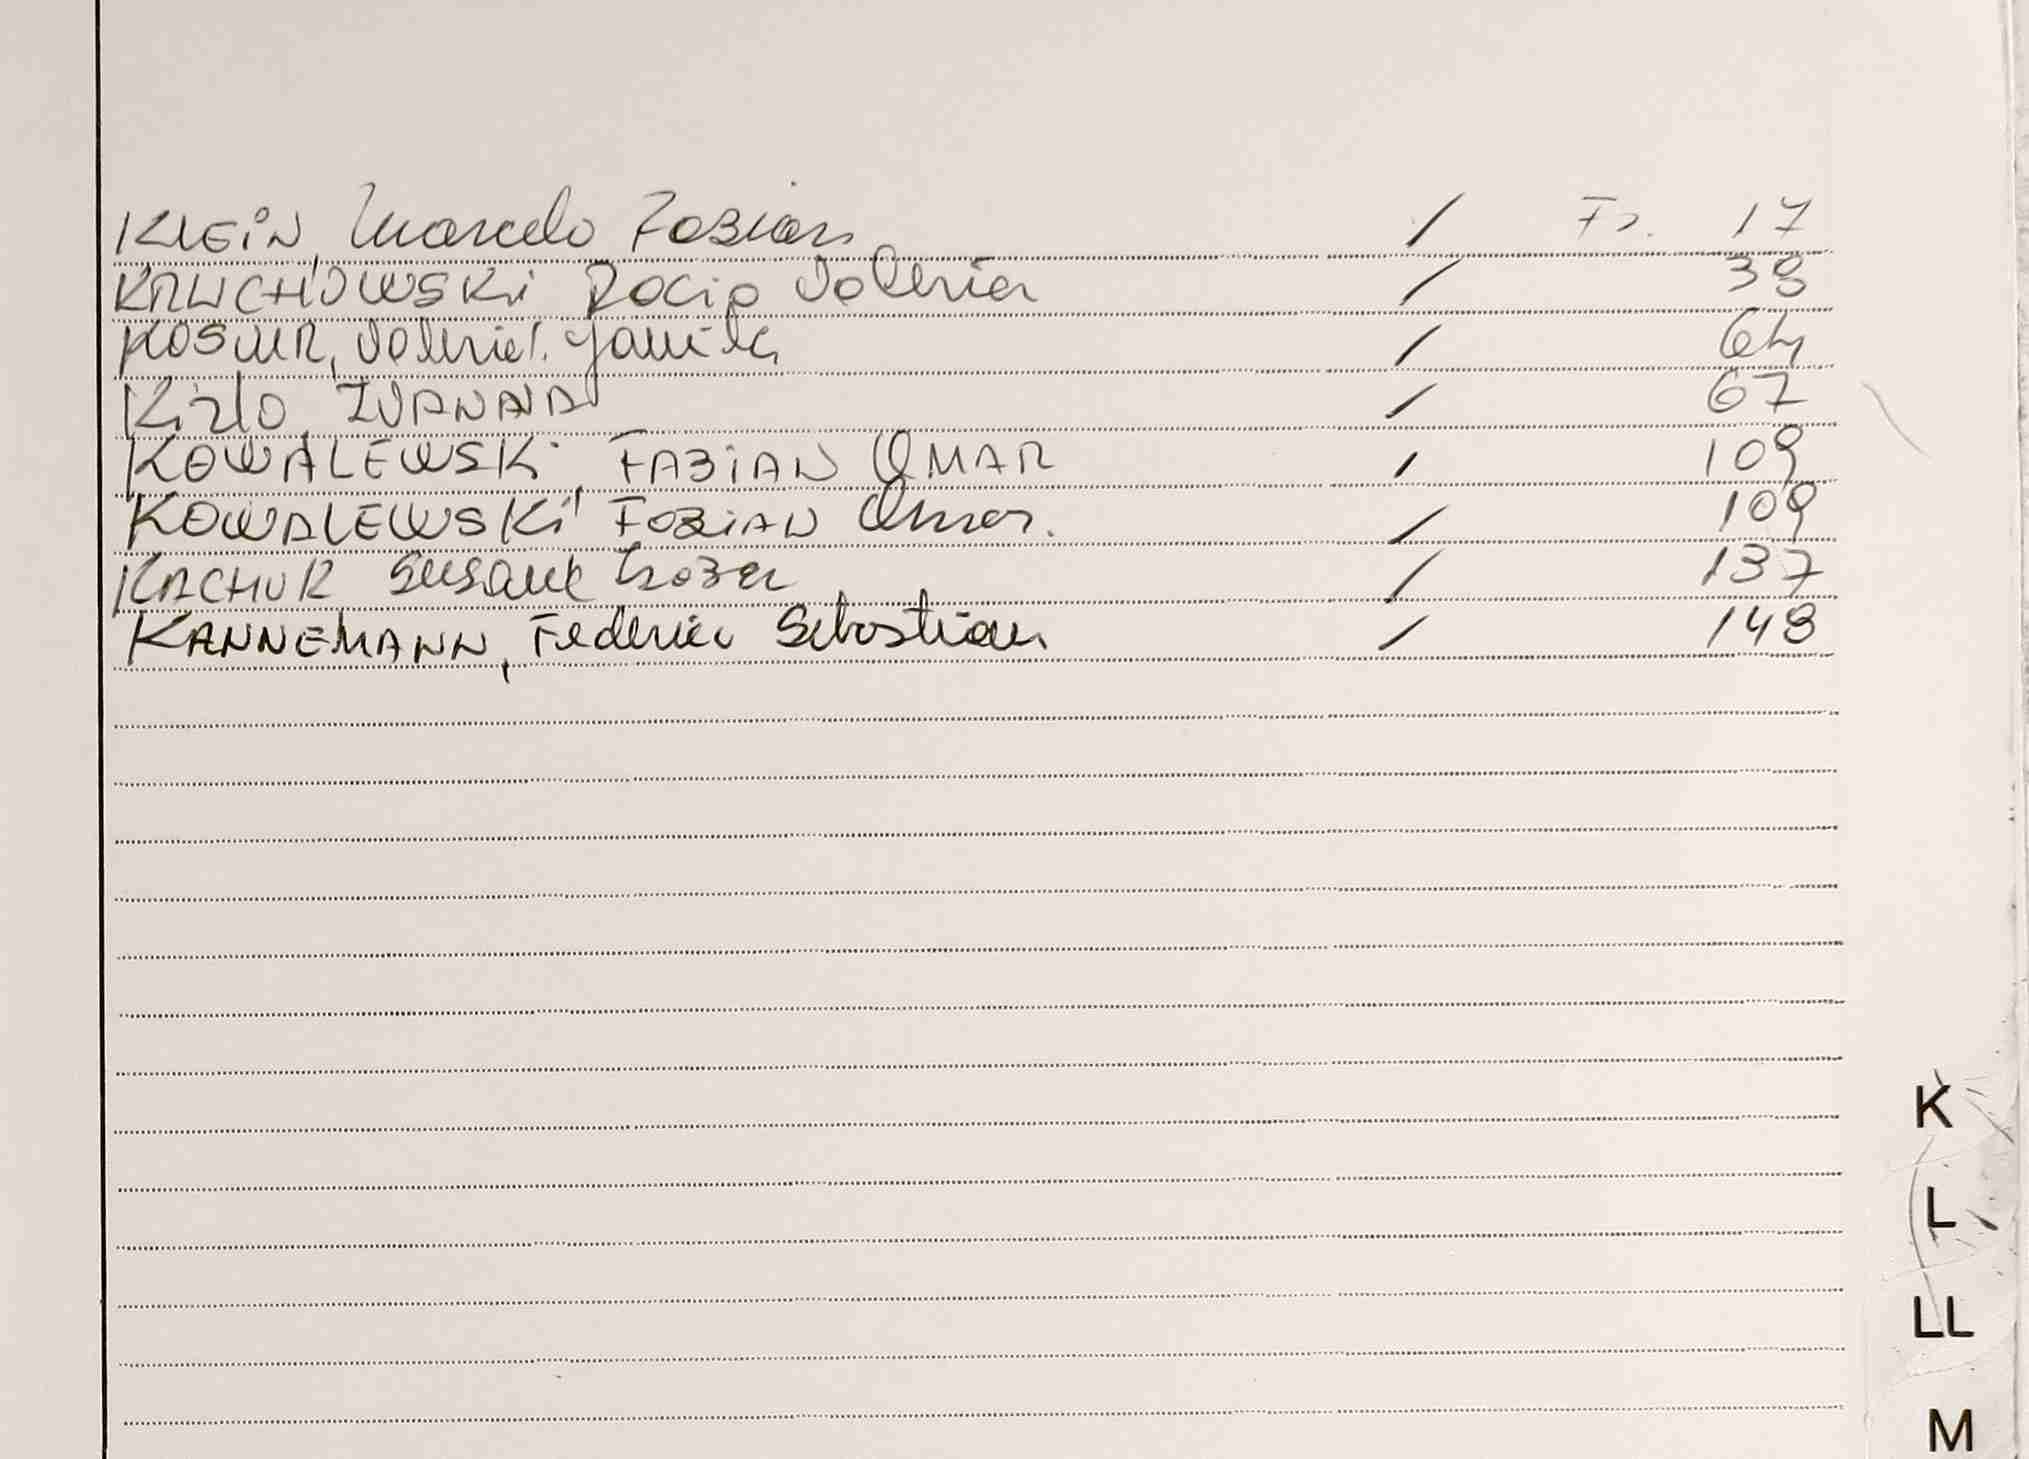 KLEiN, Marcelo Fabian / Fs. 17
KRUCHOWSKi Rocio Valeria / 38
KOSUR, Valeria Yamila / 64
KizLO, IVANNA / 67
KOWALEWSKi, FABiAN OMAR / 109
KOWALEWSKi FABiAN Omar. / 109
KACHUR Susana / 137
KANNEMANN, Federico Sebastian / 148
K
L
LL
M